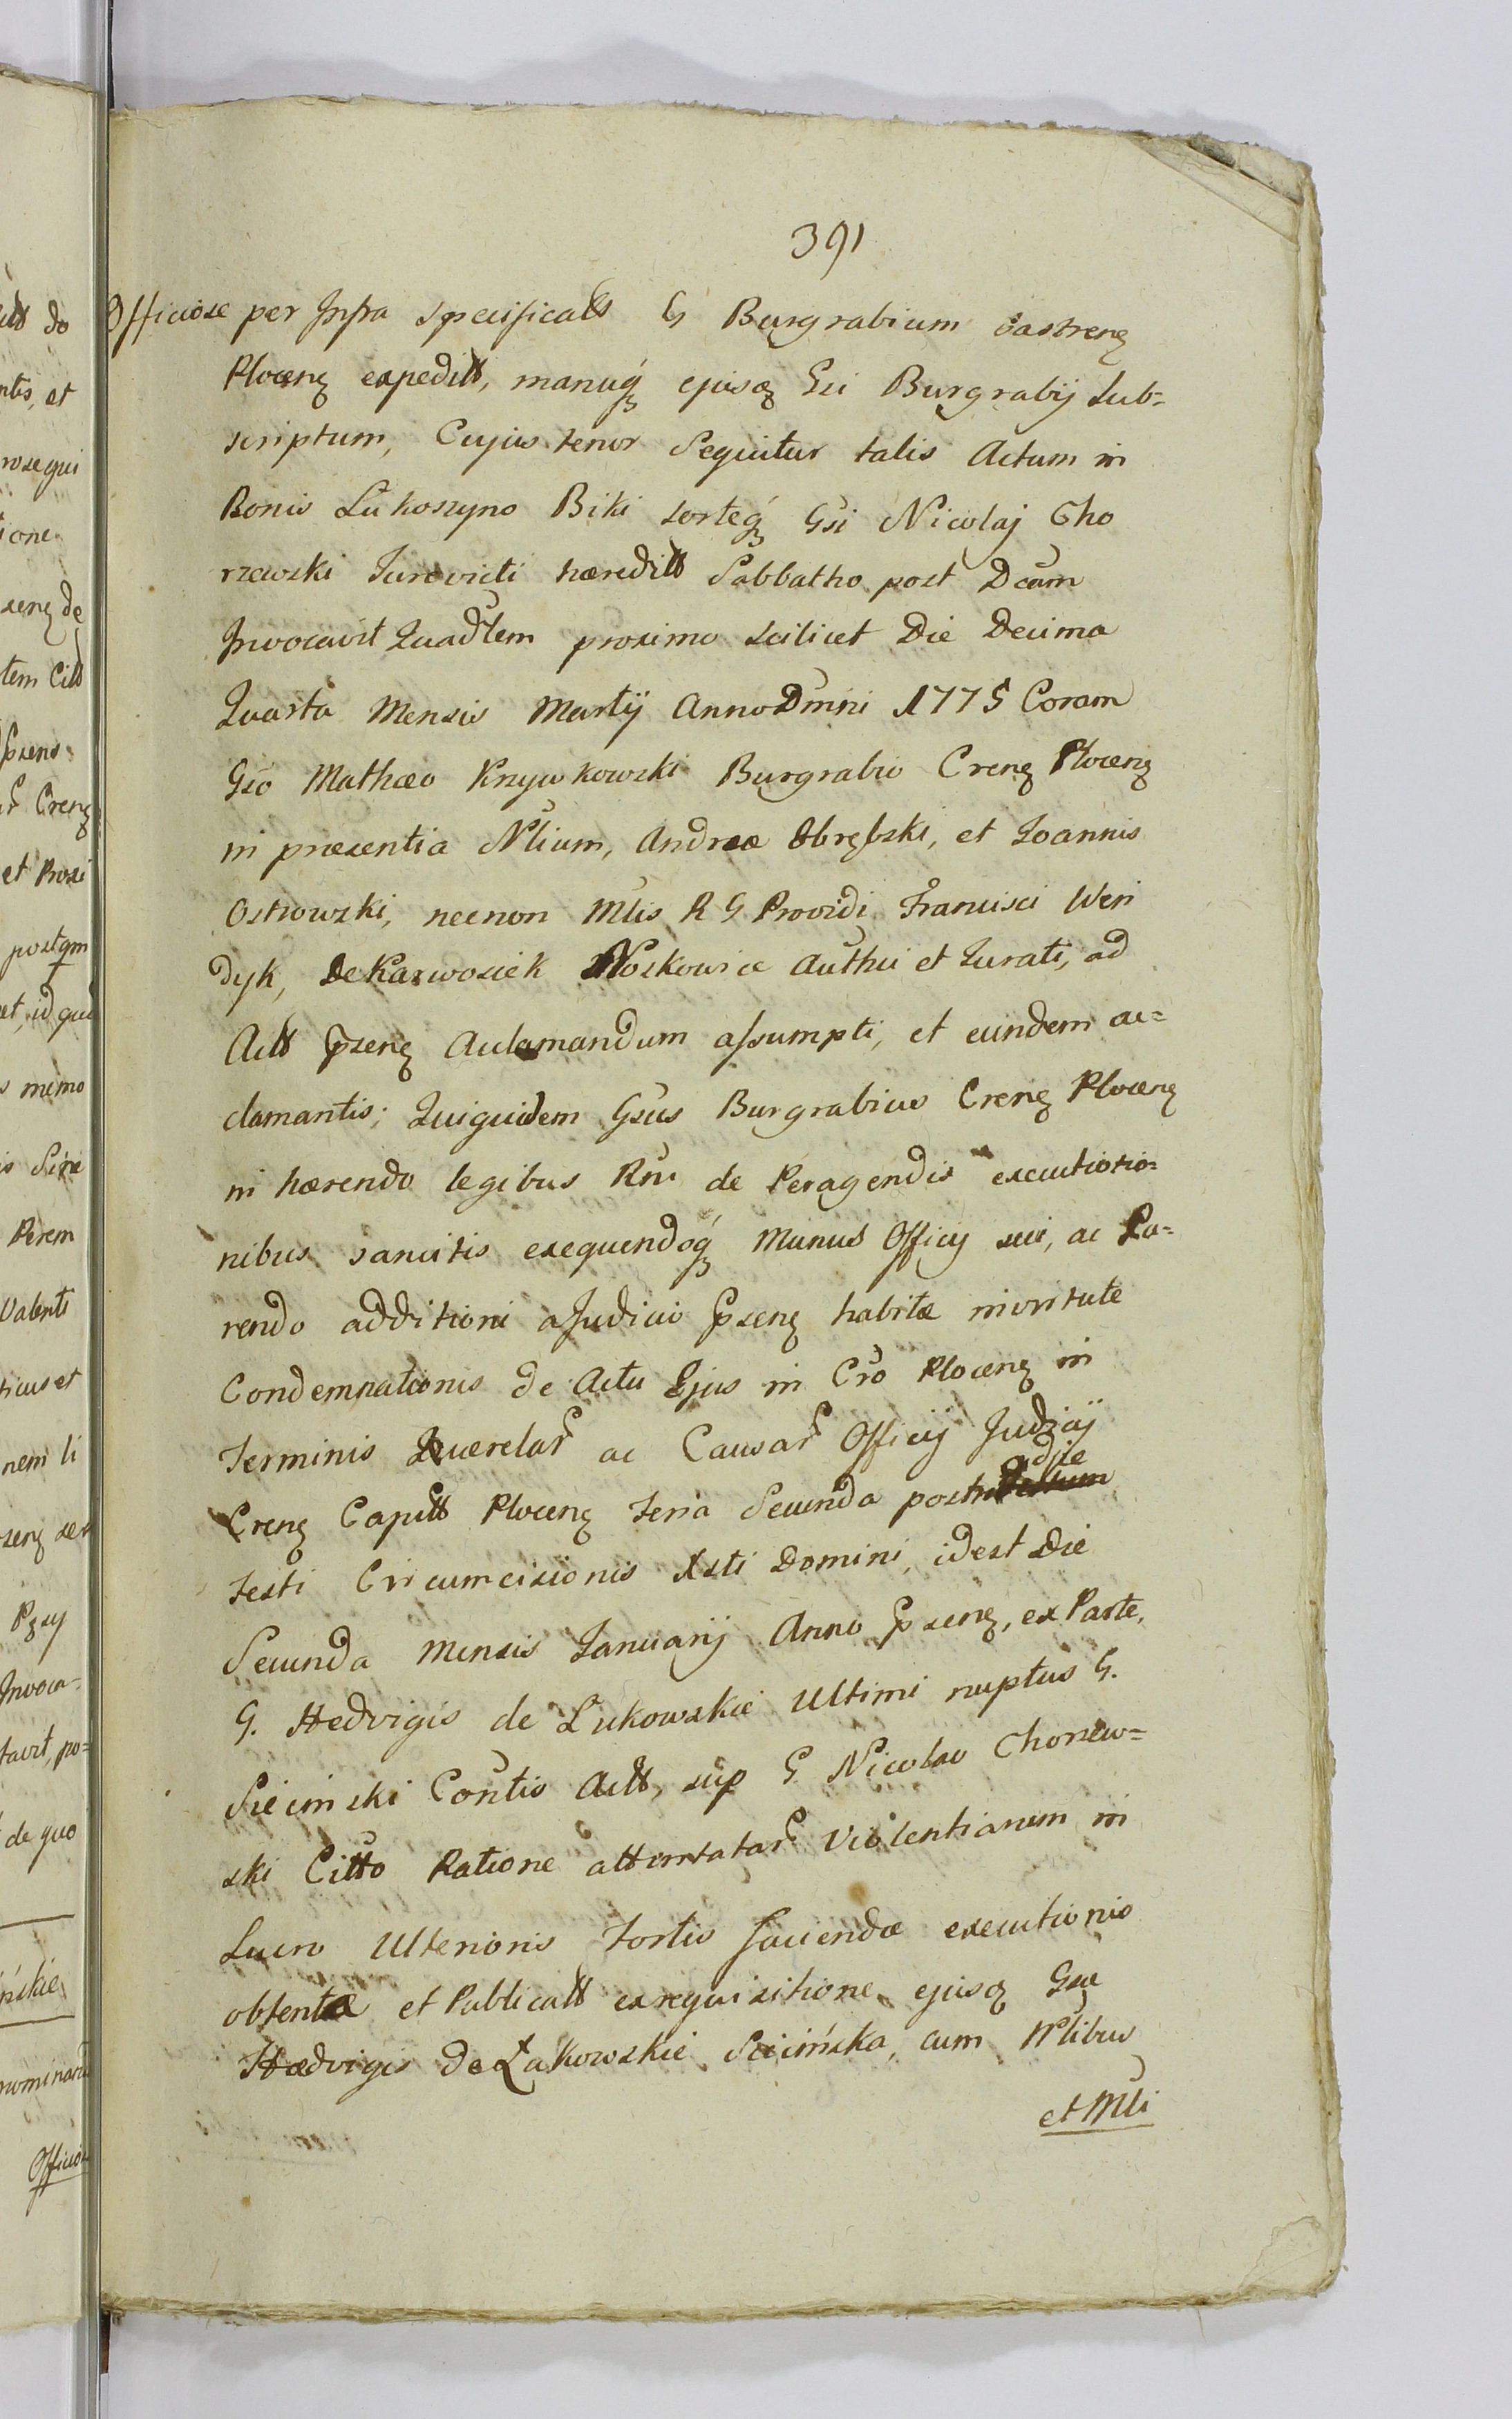 391
Officiose per Infra specificatt G Burgrabium Castrenꝫ
Plocenꝫ expeditt, manuqꝫ ejusꝫ Gsi Burgrabij Sub=
scriptum, Cujus tenor Sequitur talis Actum in
Bonis Lukoszyno Biki sorteqꝫ Gsi Nicolaj Cho
rzewski Jurevicti hæreditt Sabbatho post Dcam
Invocavit Quadlem proximo scilicet Die Decima
Quarta Mensis Martij Anno Dmni 1775 Coram
Gso Mathæo Krzywkowski Burgrabio Crenꝫ Plocenꝫ
in præsentia Nlium, Andreæ Obrębski, et Joannis
Ostrowski, necnon Mlis R G Providi Francisci Wen
dyk, de Karwosiek Noskowice Authci et Jurati, ad
Actt præsenꝫ Aclamandum assumpti, et eundem ac=
clamantis; Quiquidem Gsus Burgrabius Crenꝫ Plocenꝫ
in hærendo legibus Rni de Peragendis executiotio=
nibus sancitis exequendoqꝫ Munus Officij sui, ac Pa=
rendo additioni a Judicio præsenꝫ habitæ invirtute
Condemnationis de Actu Ejus in Cro Plocenꝫ in
Terminis Querelar ac Causar Officij Judicij
Crenꝫ Capitt Plocenꝫ Feria Secunda postridie
Festi Circumcisionis Xsti Domini, idest Die
Secunda Mensis Januarij Anno præsenꝫ, ex Parte,
G. Hedvigis de Lukowskie Ultimi nuptus G.
Siecinski Contis Actt, sup G Nicolao Chorzew=
ski Citto Ratione attentatar Violentiarum in
Lucro Ulterioris Fortis faciendæ executionis
obtentæ et Publicatt exrequisitione ejusꝫ Gsæ
Hædvigis de Lakowskie Siecińska, cum Nlibus
et Mli